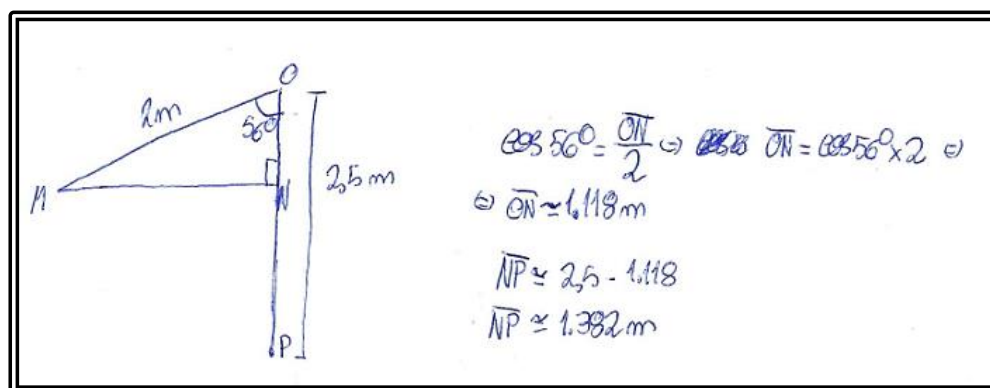 O
2m
56°
M
N
2,5 m
P
cos 56° = ON/2 ⇔ ON = cos 56° × 2 ⇔
⇔ ON ≃ 1.118 m
NP ≃ 2,5 - 1.118
NP ≃ 1.382 m